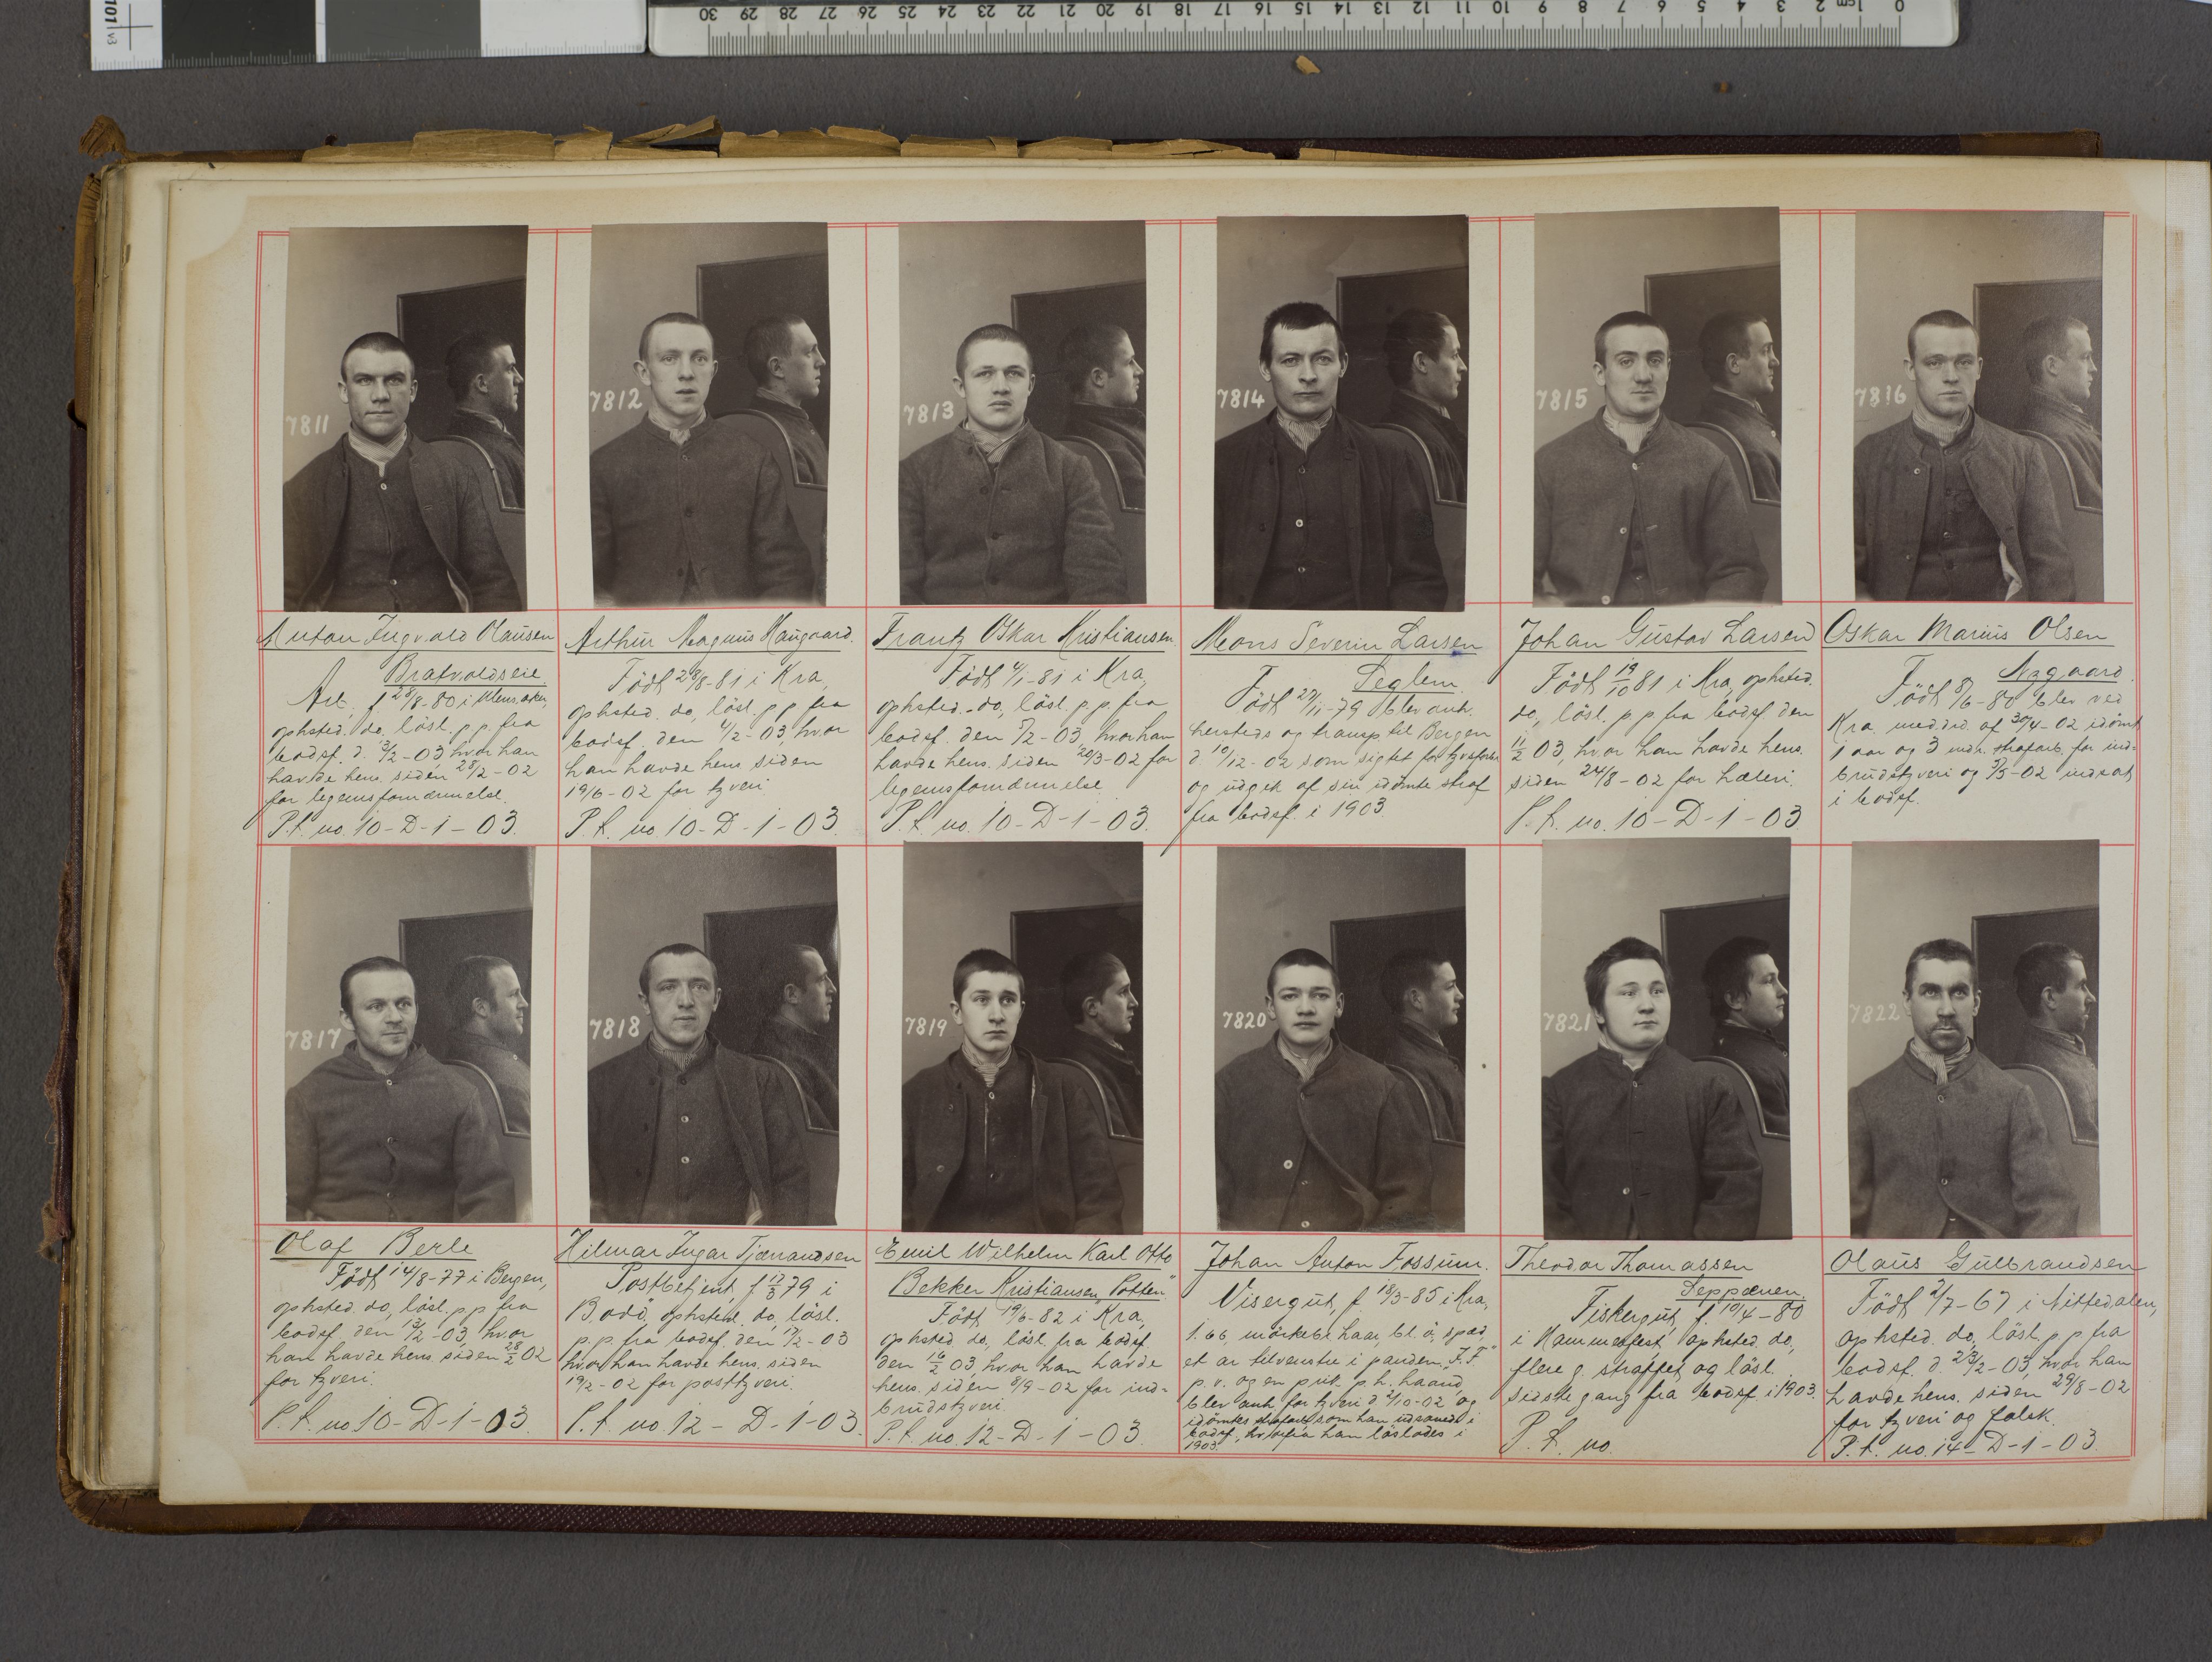 101 v3
0 1cm 2 3 4 5 6 7 8 9 10 11 12 13 14 15 16 17 18 19 20 21 22 23 24 25 26 27 28 29 30
7811
7812
7813
7814
7815
7816
Anton Ingvald Olausen
Bratvoldseie
Arb. f 28/8-80 i
ophsted. do, lösl. p p fra
bodsf. d. 13/2-03, hvor han
havde hens. siden 28/2-02
for legemsfornærmelse.
P.t. no. 10-D-1-03.
Arthur Magnus Haugaard.
Født 28/8-81 i Kra,
ophsted. do, lösl. p p fra
bodsf. den 4/2-03, hvor
han havde hens siden
19/6-02 for tyveri
P.t. no. 10-D-1-03.
Frantz Oskar Kristiansen
Født 4/1-81 i Kra,
ophsted. do, lösl. p. p. fra
bodsf. den 5/2-03, hvor han
havde hens. siden 20/3-02 for
legemsfornærmelse
P.t. no. 10-D-1-03.
Mons Severin Larsen
Seglem.
Født 27/11-79 blev anh.
hersteds og transp. til Bergen
d. 10/12-02 som sigtet for
og udgik af sin idømte straf
fra bodsf. i 1903.
Johan Gustav Larsen
Født 19/10 81 i Kra, ophsted.
do, lösl. p. p fra bodsf. den
11/2 03, hvor han havde hens.
siden 24/8-02 for hæleri.
P.t. no. 10-D-1-03
Oskar Marius Olsen
Født 8/6-80 blev ved
Kra. meddr. af 30/4-02 idømt
1 aar og 3 mdr. strafarb. for ind-
brudstyveri og 5/5-02 indsat
i bodsf.
7817
7818
7819
7820
7821
7822
Olaf Berle
Født 14/8-77 i Bergen,
ophsted. do, lösl. p p fra
bodsf. den 13/2-03, hvor
han havde hens. siden 28/2 02
for tyveri.
P.t. no. 10-D-1-03
Hilmar Ingar Tjærandsen
Postbetjent, f. 12/3 79 i
Bodö, ophsted. do, lösl.
p. p. fra bodsf. den 17/2-03
hvor han havde hens. siden
19/2-02 for posttyveri.
P.t. no. 12-D-1-03.
Emil Wilhelm Karl Otto
Bekker Kristiansen "Potten"
Født 19/6-82 i Kra,
ophsted. do, lösl. fra bodsf.
den 16/2 03, hvor han havde
hens. siden 8/9-02 for ind-
brudstyveri.
P.t. no. 12-D-1-03.
Johan Anton Fossum.
Visergut, f. 18/3-85 i Kra,
1.66, mörkebl. haar, bl. ö, spæd,
et ar tilvenstre i panden, "J.F."
p. v. og en prik p. h. haand,
blev anh. for tyveri d. 2/10-02 og
idömtes strafarb. som han udsonede i
bodsf., hvorfra han löslodes i
1903.
Theodor Thomassen
Seppænen.
Fiskergut, f. 10/4-80
i Hammerfest, ophsted. do,
flere g. straffet og lösl.
sidste gang fra bodsf. i 1903.
P.t. no
Olaüs Gulbrandsen
Født 2/7-67 i Nittedalen,
ophsted. do, lösl. p. p fra
bodsf. d. 23/2-03, hvor han
havde hens. siden 29/8-02
for tyveri og falsk.
P.t. no. 14-D-1-03.